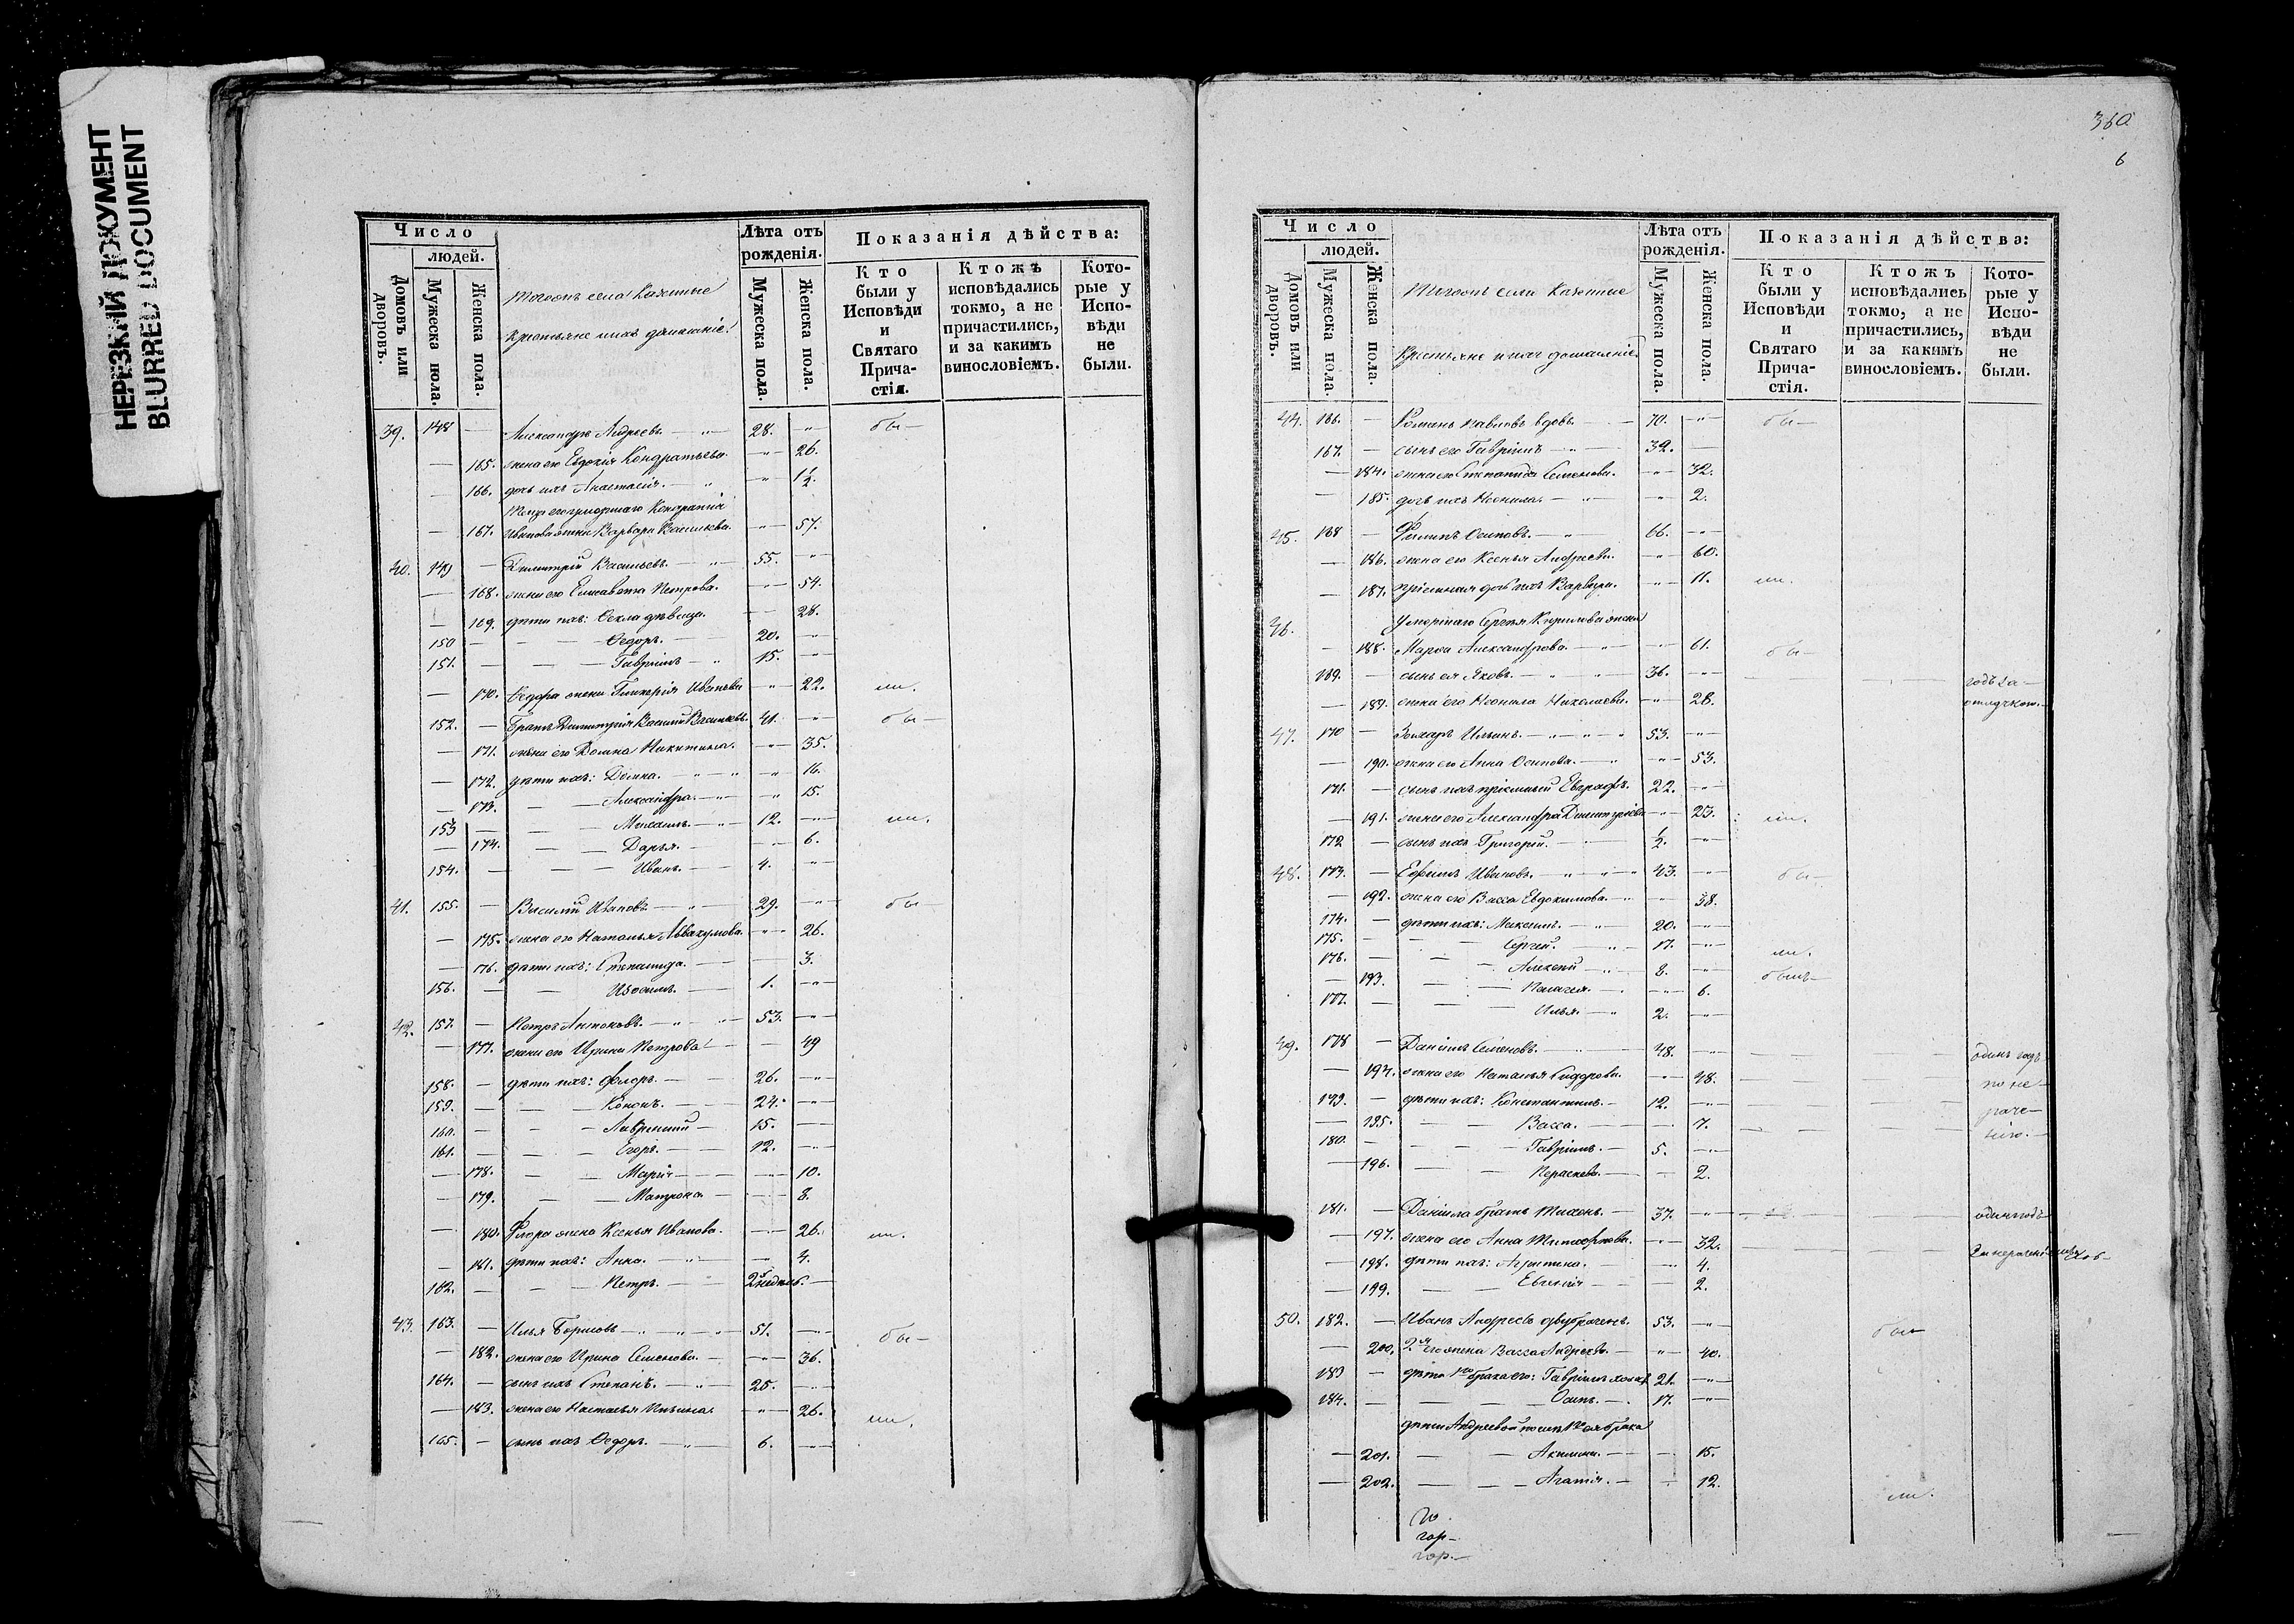 НЕРЕЗКИЙ ДОКУМЕНТ
BLURRED DOCUMENT
Число
людей.
Домовъ или дворовъ.
Мужеска пола.
Женска пола.
Тогожъ села Казенные
крестьяне и ихъ домашніе
Лѣта отъ рожденія.
Мужеска пола.
Женска пола.
Показанія дѣйства:
Кто были у Исповѣди и Святаго Причастія.
Ктожъ исповѣдались токмо, а не причастились, и за какимъ винословіемъ.
Которые у Исповѣди не были.
39. 148 — Александръ Андреевъ. 28. бы—
— 165. жена его Евдокія Кондратьева. 26.
— 166. дочь ихъ Анастасія. 1½.
— 167. Иванова жена Варвара Васильева. 57.
40. 149 — Димитрій Васильевъ. 55.
— 168. жена его Елисавета Петрова. 54.
— 169. дѣти ихъ: Ѳекла дѣвица. 28.
150 — Ѳедоръ. 20.
151. — Гавріилъ 15.
— 170. Ѳедора жена Гликерія Иванова 22. ли.
152. — Братъ Димитрія Василій Васильевъ. 41. бы—
— 171. жена его Домна Никитина. 35.
— 172. дѣти ихъ: Домна. 16.
— 173. Александра. 15.
153 — Михаилъ. 12. ли.
— 174. Дарья. 6.
154. — Иванъ. 4.
41. 155. — Василій Ивановъ 29. бы—
— 175. жена его Наталья Аввакумова. 26.
— 176. дѣти ихъ: Степанида. 3.
156. — Изосимъ. 1.
42. 157. — Петръ Антоновъ. 53.
— 177. жена его Ирина Петрова 49
158. — дѣти ихъ: Флоръ. 26.
159. — Кононъ. 24.
160. — Лаврентій 15.
161. — Егоръ. 12.
— 178. Марія 10.
— 179. Матрона. 8.
— 180. Флора жена Ксенья Иванова. 26. ли.
— 181. дѣти ихъ: Анна. 4.
162. — Петръ. 2 недѣль.
43. 163. — Илья Борисовъ 51. бы—
— 182. жена его Ирина Семенова. 36.
164. — сынъ ихъ Степанъ. 25.
— 183. жена его Настасья Ильина. 26. ли.
165. — сынъ ихъ Ѳедоръ. 6.
360
6
Число
людей.
Домовъ или дворовъ.
Мужеска пола.
Женска пола.
Тогожъ села Казенные
Крестьяне и ихъ домашніе
Лѣта отъ рожденія.
Мужеска пола.
Женска пола.
Показанія дѣйства:
Кто были у Исповѣди и Святаго Причастія.
Ктожъ исповѣдались токмо, а не причастились, и за какимъ винословіемъ.
Которые у Исповѣди не были.
44. 166. — Романъ Павловъ вдовъ. 70. бы—
167. — сынъ его Гавріилъ 32.
— 184. жена его Степанида Семенова. 32.
— 185. дочь ихъ Неонила. 2.
45. 168 — Филипъ Осиповъ. 66.
— 186. жена его Ксенья Андреева. 60.
— 187. пріемная дочь ихъ Варвара. 11. ли.
46. Умершаго Сергѣя Кирилова жена
— 188. Марѳа Александрова. 61. бы—
169. — сынъ ея Яковъ. 36. годъ за
— 189. жена его Неонила Николаева. 28. отлучкою.
47. 170 — Захаръ Ильинъ. 53.
— 190. жена его Анна Осипова. 53.
171. — сынъ ихъ пріемный Евграфъ. 22.
— 191. жена его Александра Димитріева 23. ли.
172 — сынъ ихъ Григорій. ½.
48. 173. — Ефимъ Ивановъ. 43. бы—
— 192. жена его Васса Евдокимова. 38.
174. — дѣти ихъ: Максимъ. 20.
175. — Сергей. 17. ли.
176. — Алексѣй 8. былъ
— 193. Пелагея. 6.
177. — Илья. 2.
49. 178 — Даніилъ Семеновъ. 48. одинъ годъ
— 194. жена его Наталья Сидорова. 48. по не
179. — дѣти ихъ: Константинъ. 12. раче
— 195. Васса. 7. нію.
180. — Гавріилъ. 5.
— 196. Параскева. 2.
181. — Даніила братъ Тихонъ. 37. одинъ годъ
— 197. жена его Анна Тимоѳеева. 32.
— 198. дѣти ихъ: Агрипина. 4.
— 199. Евгенія 2.
50. 182. — Иванъ Андреевъ двубраченъ. 53. бы
— 200. 2я его жена Васса Андреева. 40.
183 — дѣти 1го брака его: Гавріилъ холостъ 21.
184. — Осипъ. 17.
дѣти Андреевой 1го брака
— 201. Акилина. 15.
— 202. Агаѳія. 12. ли.